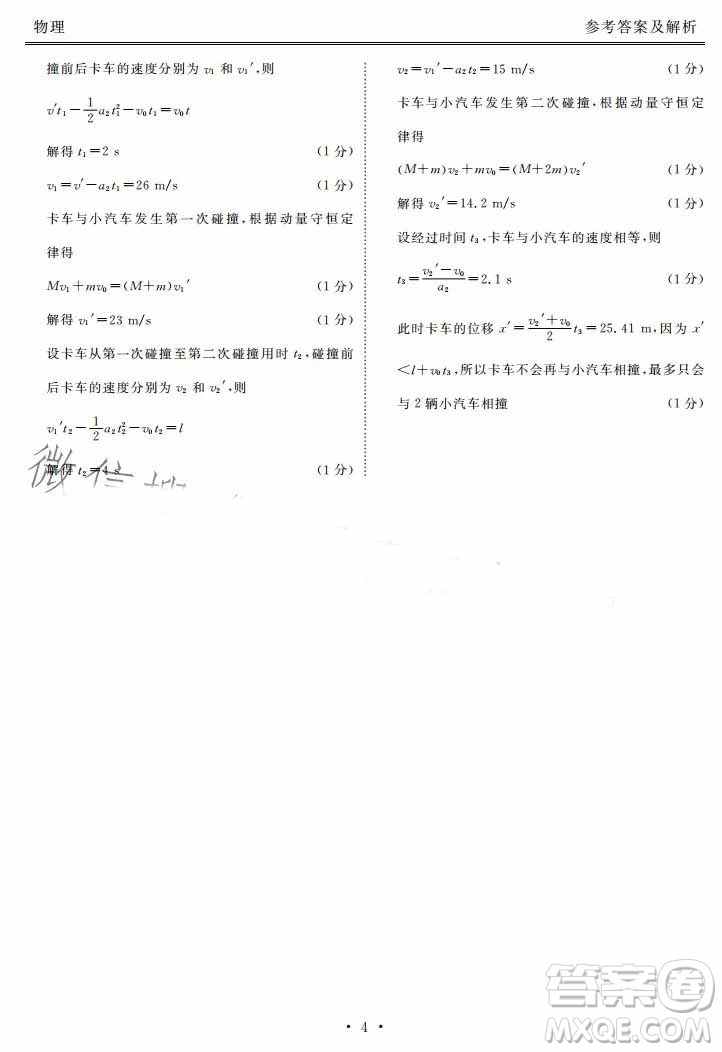 物理
参考答案及解析
撞前后卡车的速度分别为 v₁ 和 v₁′,则
v′t₁-1/2a₂t₁²-v₀t₁=v₀t
解得 t₁=2 s (1 分)
v₁=v′-a₂t₁=26 m/s (1 分)
卡车与小汽车发生第一次碰撞,根据动量守恒定
律得
Mv₁+mv₀=(M+m)v₁′ (1 分)
解得 v₁′=23 m/s (1 分)
设卡车从第一次碰撞至第二次碰撞用时 t₂,碰撞前
后卡车的速度分别为 v₂ 和 v₂′,则
v₁′t₂-1/2a₂t₂²-v₀t₂=l
解得 t₂=4 s (1 分)
微信
v₂=v₁′-a₂t₂=15 m/s (1 分)
卡车与小汽车发生第二次碰撞,根据动量守恒定
律得
(M+m)v₂+mv₀=(M+2m)v₂′ (1 分)
解得 v₂′=14.2 m/s (1 分)
设经过时间 t₃,卡车与小汽车的速度相等,则
t₃=(v₂′-v₀)/a₂=2.1 s (1 分)
此时卡车的位移 x′=(v₂′+v₀)/2 t₃=25.41 m,因为 x′
<l+v₀t₃,所以卡车不会再与小汽车相撞,最多只会
与 2 辆小汽车相撞 (1 分)
• 4 •
答案卷
MXQE.COM